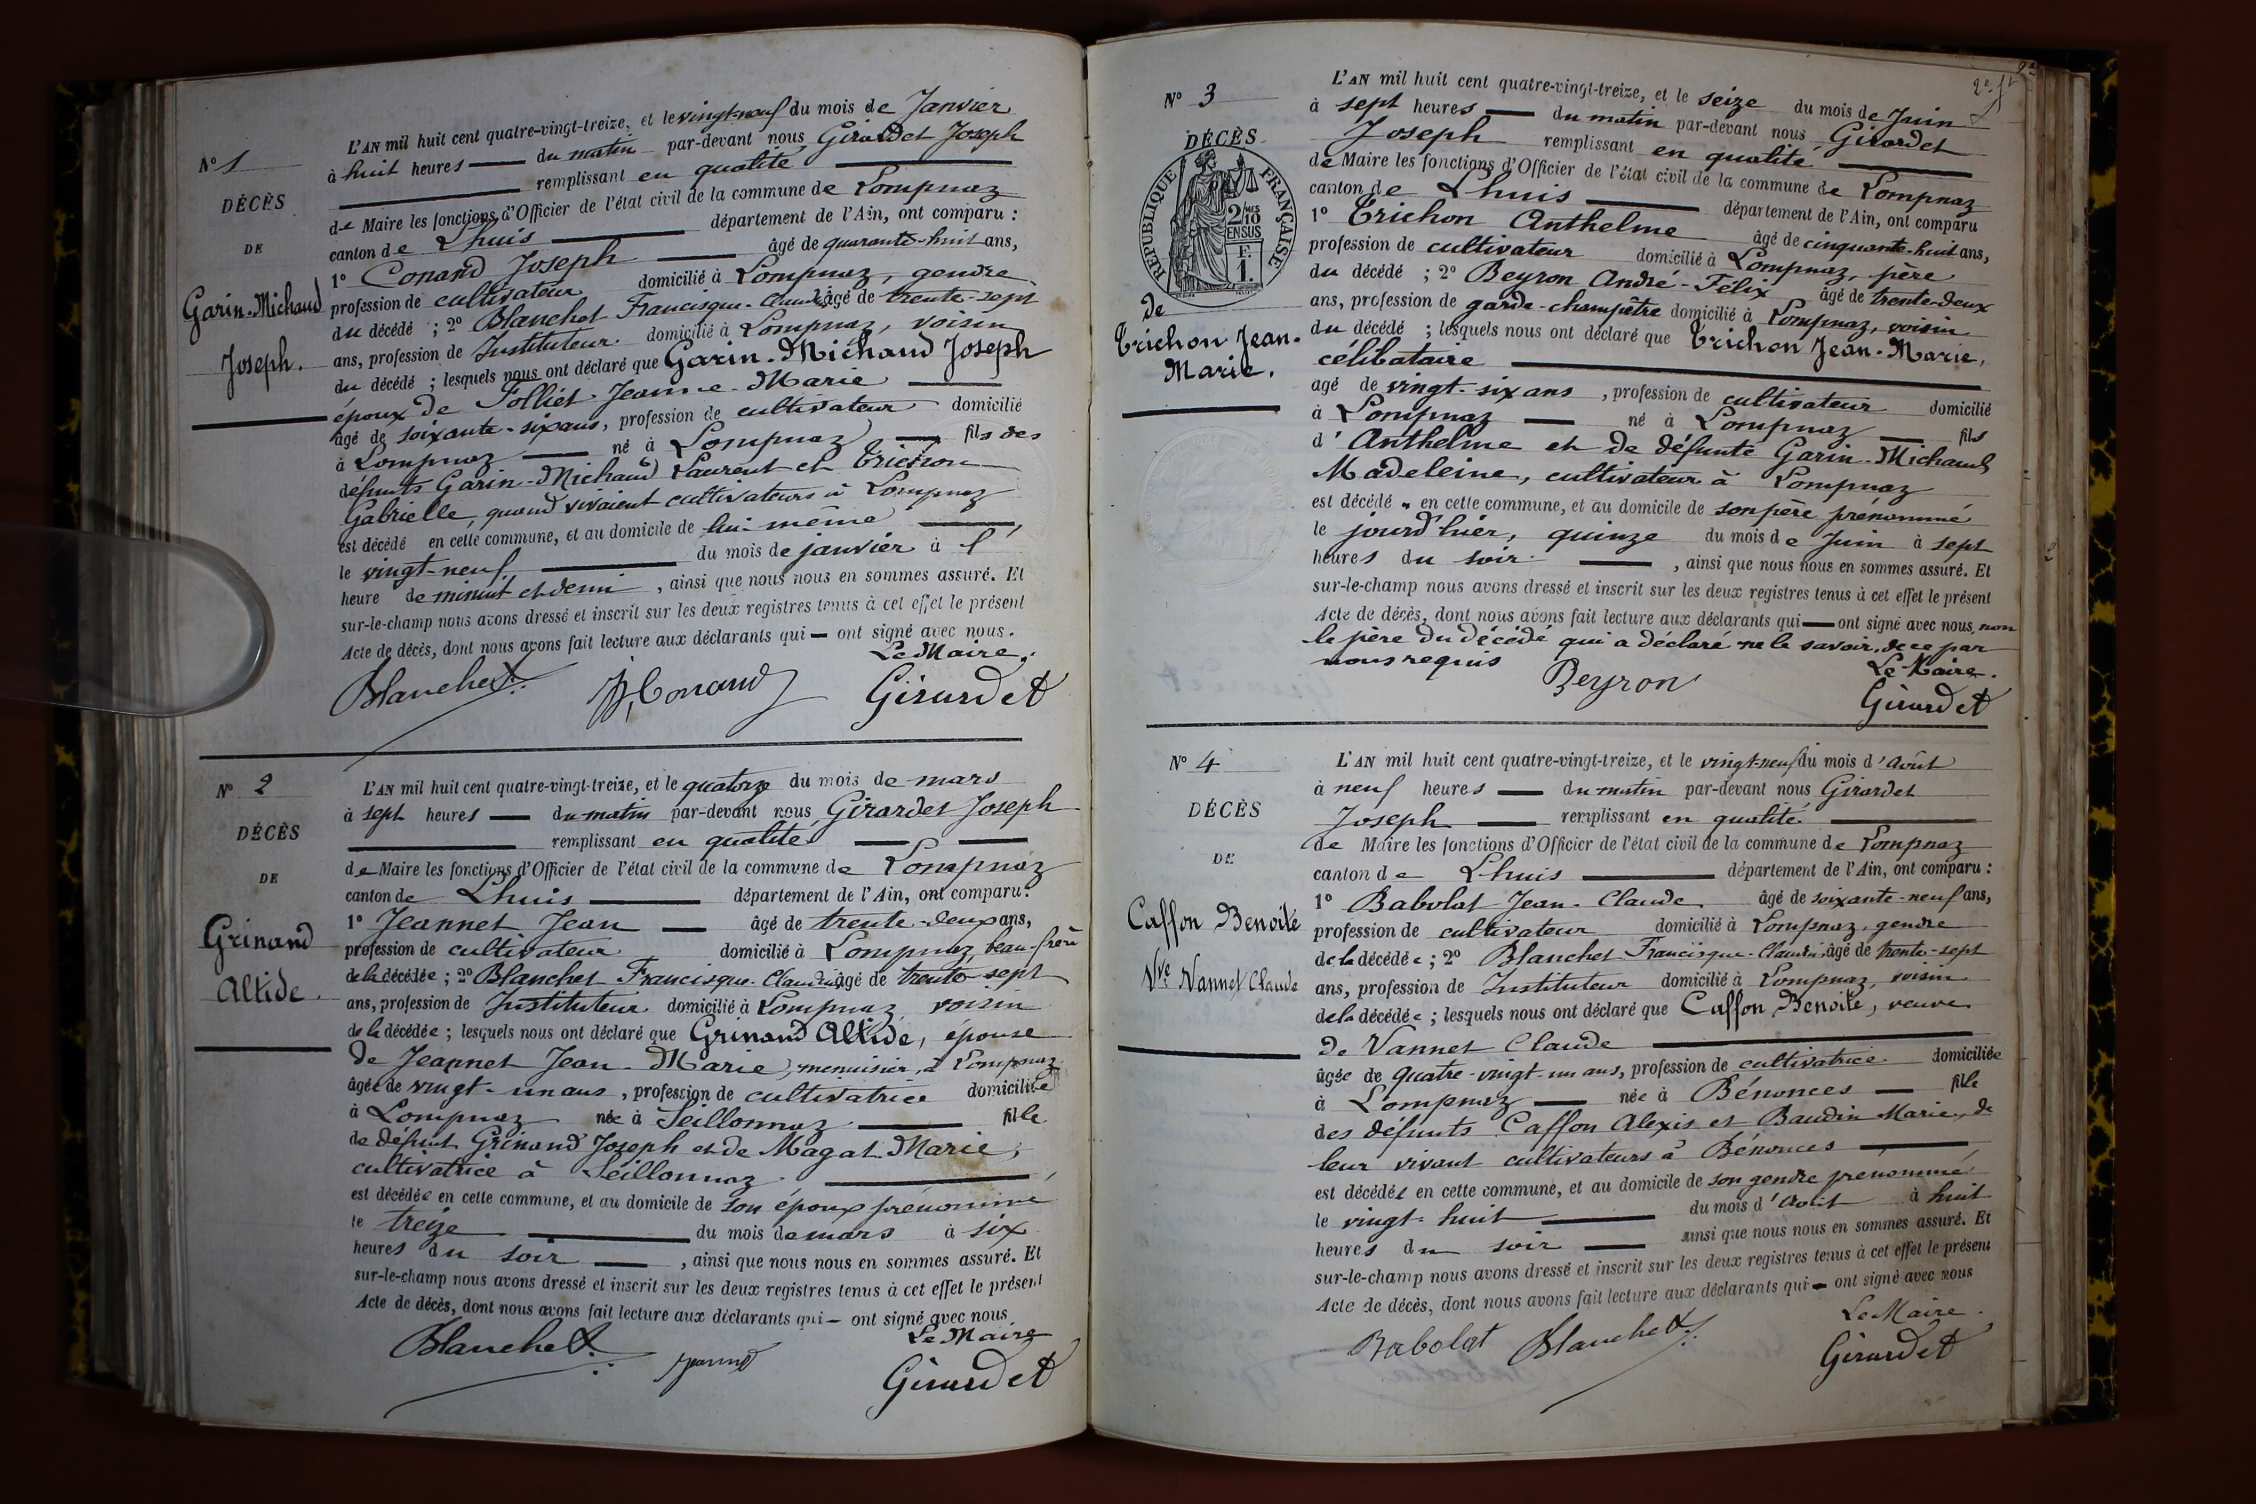 L'AN mil huit cent quatre-vingt-treize, et le vingt-neuf du mois de Janvier
N° 1
à huit heures du matin par-devant nous Girardet Joseph
remplissant en qualité
DÉCÈS
de Maire les fonctions d'Officier de l'état civil de la commune de Lompnaz
canton de Lhuis département de l'Ain, ont comparu :
DE
1° Conand Joseph âgé de quarante-huit ans,
Garin-Michaud
profession de cultivateur domicilié à Lompnaz, gendre
du décédé ; 2° Blanchet Francisque-Claudius âgé de trente-sept
Joseph.
ans, profession de Instituteur domicilié à Lompnaz, voisin
du décédé ; lesquels nous ont déclaré que Garin-Michaud Joseph
époux de Folliet Jeanne-Marie
âgé de soixante-six ans, profession de cultivateur domicilié
à Lompnaz né à Lompnaz fils des
défunts Garin-Michaud Laurent et Trichon
Gabrielle, quand vivaient cultivateurs à Lompnaz
est décédé en cette commune, et au domicile de lui-même
le vingt-neuf du mois de janvier à l'
heure de minuit et demi, ainsi que nous nous en sommes assuré. Et
sur-le-champ nous avons dressé et inscrit sur les deux registres tenus à cet effet le présent
Acte de décès, dont nous avons fait lecture aux déclarants qui — ont signé avec nous.
Le Maire.
Blanchet J. Conand Girardet
N° 2
L'AN mil huit cent quatre-vingt-treize, et le quatorze du mois de mars
à sept heures du matin par-devant nous, Girardet Joseph
DÉCÈS
remplissant en qualité
DE
de Maire les fonctions d'Officier de l'état civil de la commune de Lompnaz
canton de Lhuis département de l'Ain, ont comparu :
1° Jeannet Jean âgé de trente-deux ans,
Grinand
profession de cultivateur domicilié à Lompnaz, beau-frère
de la décédée ; 2° Blanchet Francisque-Claudius âgé de trente-sept
Altide.
ans, profession de Instituteur domicilié à Lompnaz voisin
de la décédée ; lesquels nous ont déclaré que Grinand Altide, épouse
de Jeannet Jean-Marie, menuisier, à Lompnaz
âgée de vingt-un ans, profession de cultivatrice domiciliée
à Lompnaz née à Seillonnaz fille
de défunt Grinand Joseph et de Magat Marie,
cultivatrice à Seillonnaz
est décédée en cette commune, et au domicile de son époux prénommé
le treize du mois de mars à six
heures du soir, ainsi que nous nous en sommes assuré. Et
sur-le-champ nous avons dressé et inscrit sur les deux registres tenus à cet effet le présent
Acte de décès, dont nous avons fait lecture aux déclarants qui — ont signé avec nous
Le Maire
Blanchet Jeannet Girardet
L'AN mil huit cent quatre-vingt-treize, et le seize du mois de Juin
N° 3
à sept heures du matin par-devant nous Girardet
Joseph remplissant en qualité
DÉCÈS
de Maire les fonctions d'Officier de l'état civil de la commune de Lompnaz
canton de Lhuis département de l'Ain, ont comparu
RÉPUBLIQUE FRANÇAISE
2/10 EN SUS
F. 1.
1° Trichon Anthelme âgé de cinquante-huit ans,
profession de cultivateur domicilié à Lompnaz, père
du décédé ; 2° Beyron André-Félix âgé de trente-deux
de
ans, profession de garde-champêtre domicilié à Lompnaz, voisin
Trichon Jean-
Marie.
du décédé ; lesquels nous ont déclaré que Trichon Jean-Marie,
célibataire
agé de vingt-six ans, profession de cultivateur domicilié
à Lompnaz né à Lompnaz fils
d'Anthelme et de défunte Garin-Michaud
Madeleine, cultivateur à Lompnaz
est décédé en cette commune, et au domicile de son père prénommé
le jourd'hier, quinze du mois de Juin à sept
heures du soir, ainsi que nous nous en sommes assuré. Et
sur-le-champ nous avons dressé et inscrit sur les deux registres tenus à cet effet le présent
Acte de décès, dont nous avons fait lecture aux déclarants qui — ont signé avec nous, non
le père du décédé qui a déclaré ne le savoir, de ce par
nous requis
Le Maire.
Beyron Girardet
N° 4
L'AN mil huit cent quatre-vingt-treize, et le vingt-neuf du mois d'août
à neuf heures du matin par-devant nous Girardet
DÉCÈS
Joseph remplissant en qualité
DE
de Maire les fonctions d'Officier de l'état civil de la commune de Lompnaz
canton de Lhuis département de l'Ain, ont comparu :
1° Babolat Jean-Claude âgé de soixante-neuf ans,
Caffon Benoite
profession de cultivateur domicilié à Lompnaz, gendre
de la décédée ; 2° Blanchet Francisque-Claudius âgé de trente-sept
Vve Vannet Claude
ans, profession de Instituteur domicilié à Lompnaz, voisin
de la décédée ; lesquels nous ont déclaré que Caffon Benoite, veuve
de Vannet Claude
âgée de quatre-vingt-un ans, profession de cultivatrice domiciliée
à Lompnaz née à Bénonces fille
des défunts Caffon Alexis et Baudin Marie, de
leur vivant cultivateurs à Bénonces
est décédée en cette commune, et au domicile de son gendre prénommé
le vingt-huit du mois d'Août à huit
heures du soir ainsi que nous nous en sommes assuré. Et
sur-le-champ nous avons dressé et inscrit sur les deux registres tenus à cet effet le présent
Acte de décès, dont nous avons fait lecture aux déclarants qui — ont signé avec nous
Le Maire.
Babolat Blanchet Girardet